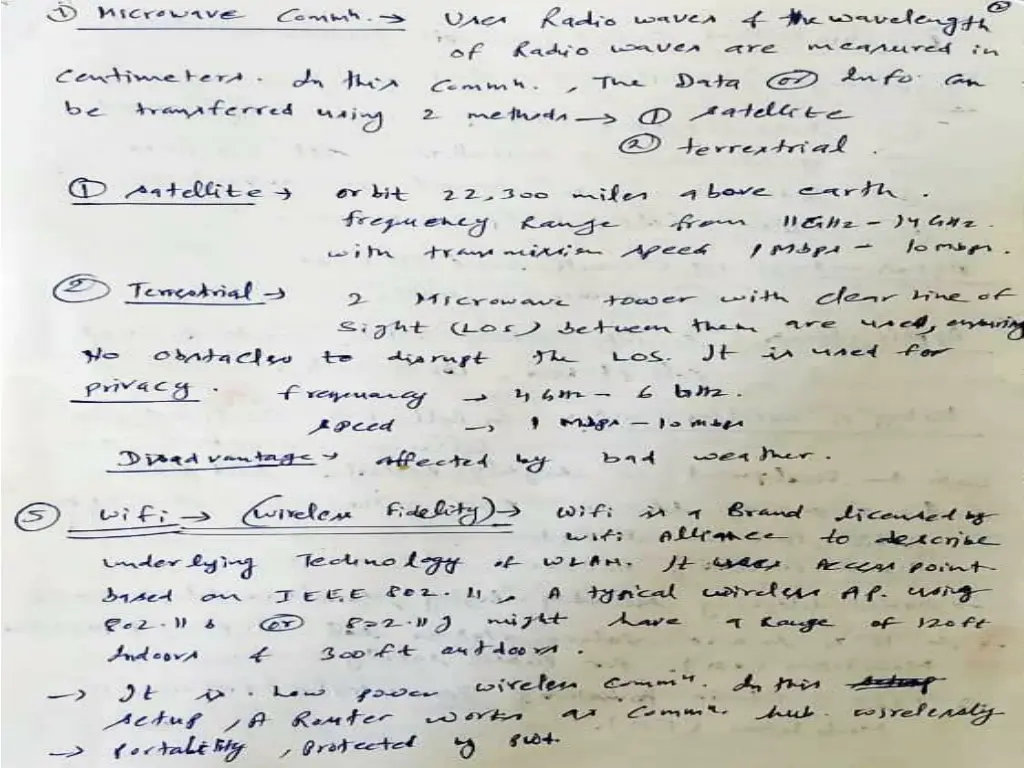 ② 
① Microwave Commn. → Uses Radio waves & the wavelength
of Radio waves are measured in
Centimeters. In this Commn., The Data or Info. can
be transferred using 2 methods → ① satellite
② terrestrial.
① satellite → orbit 22,300 miles above earth.
frequency Range from 11GHz - 14GHz.
with transmission speed 1 Mbps - 10 mbps.
② Terrestrial → 2 Microwave tower with clear line of
Sight (LOS) between them are used, ensuring
No obstacles to disrupt the LOS. It is used for
privacy. frequency → 4 GHz - 6 GHz.
speed → 1 Mbps - 10 mbps
Disadvantage → affected by bad weather.
⑤ wifi → (wireless Fidelity) → wifi is a Brand licensed by
wifi Alliance to describe
underlying Technology of WLAN. It uses Access point
based on IEEE 802.11, A typical wireless AP. using
802.11 b or 802.11g might have a range of 120ft
Indoors & 300 ft outdoors.
→ It is low power wireless Commn. In this setup
setup, A Router works as Commn. hub. wirelessly
→ Portability, Protected by pwd.